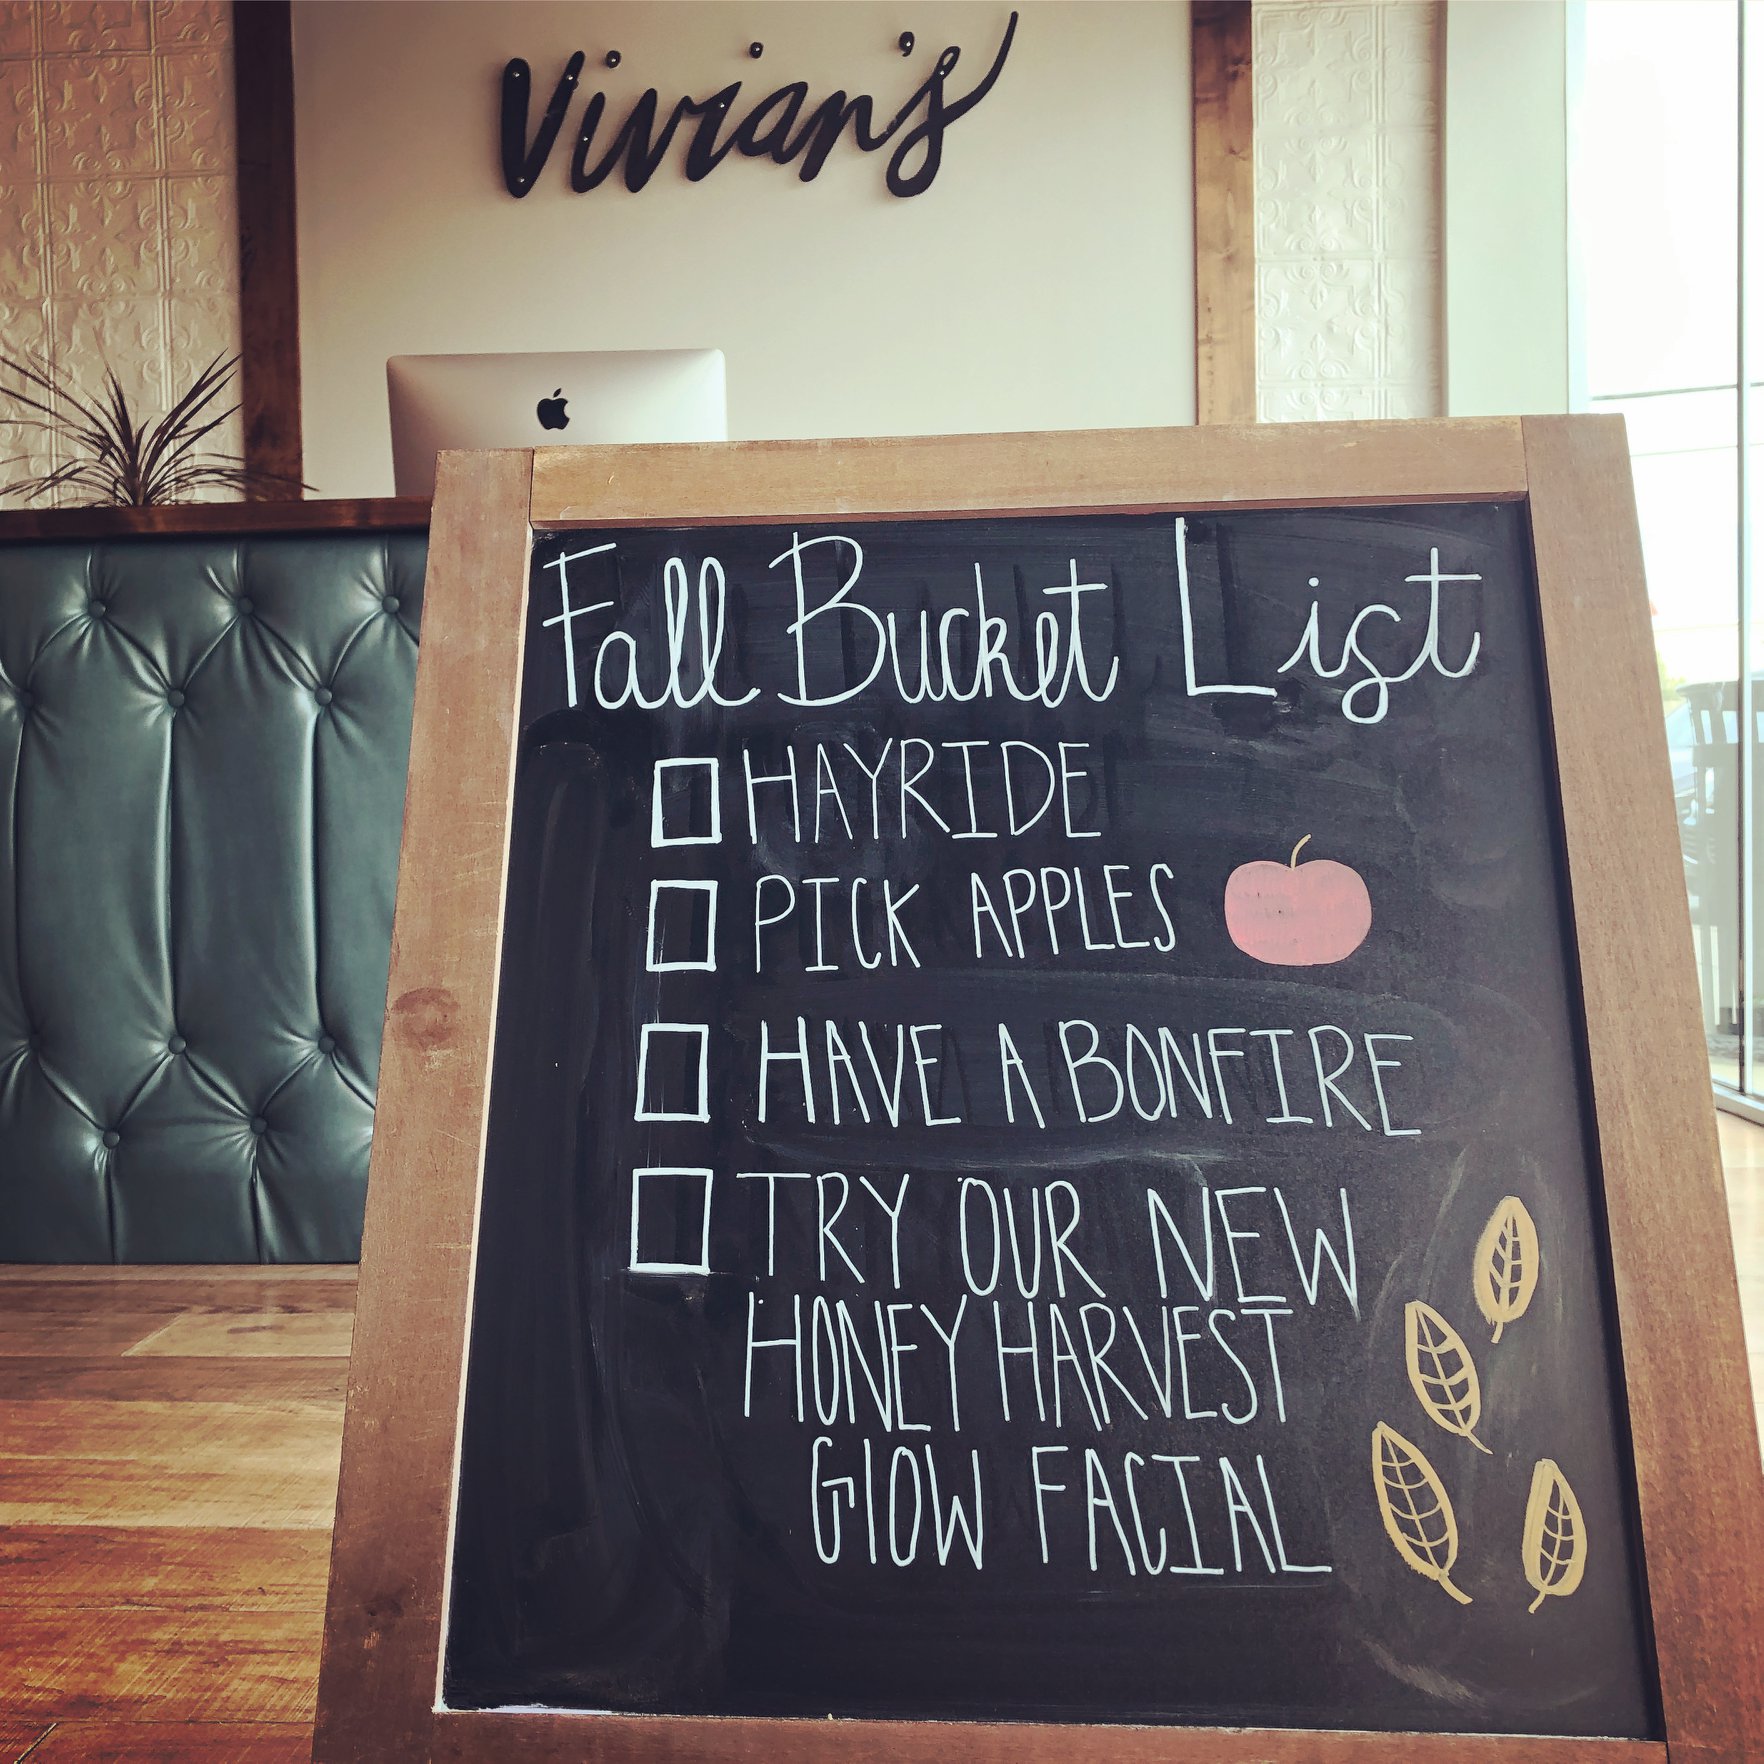 Vivian's
Fall Bucket List
HAYRIDE
PICK APPLES
HAVE A BONFIRE
TRY OUR NEW
HONEY HARVEST
GLOW FACIAL